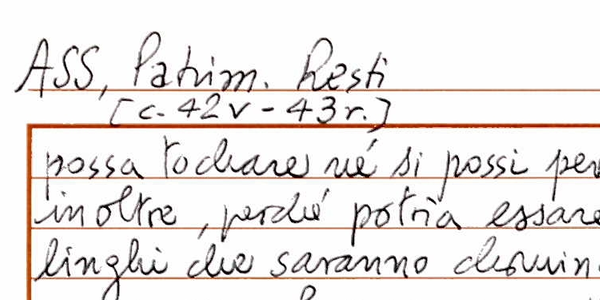 ASS, Patrim. Resti
[c. 42v - 43r.]
possa tochare né si possi per
inoltre, perché potria essare
linghi che saranno